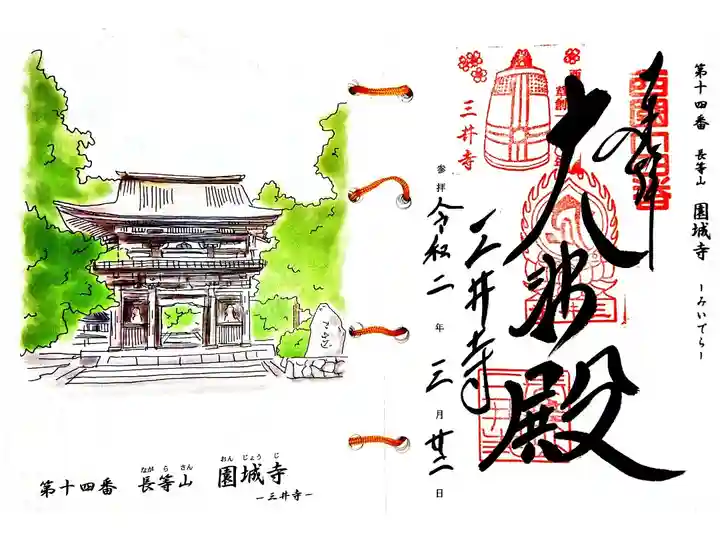 ながらさん
おんじょうじ
第十四番 長等山 園城寺
ー三井寺ー
第十四番 長等山 園城寺 ーみいでらー
奉拝
西国十四番
大悲殿
三井寺
三井寺
参拝 令和二年三月廿二日